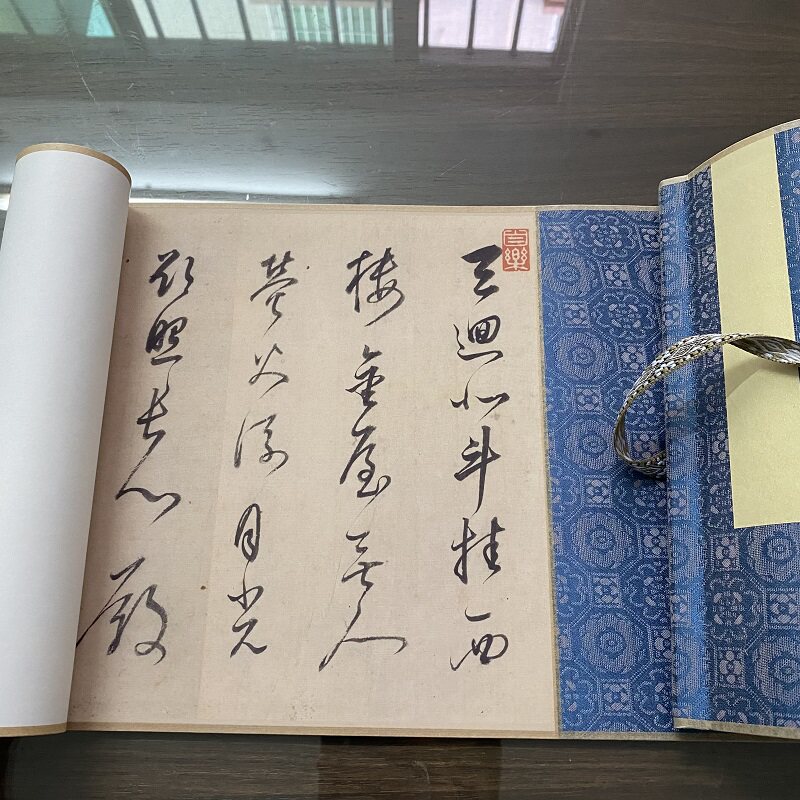 天迴北斗挂西
樓金屋無人
螢火流月光
欲照長門殿